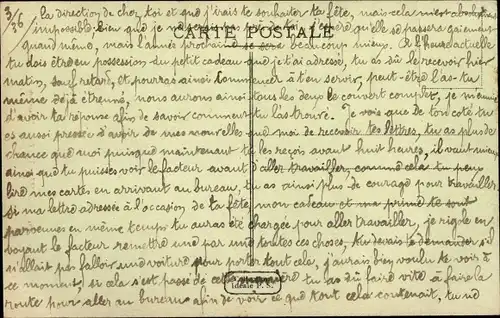 3/36
la direction de chez toi et que j'irais te souhaiter ta fête, mais cela m'est absolument
impossible, bien que je n'y serai pas, j'espère qu'elle se passera gaiement
quand même, mais l'année prochaine ce sera beaucoup mieux. A l'heure actuelle
CARTE POSTALE
tu dois être en possession du petit cadeau que je t'ai adressé, tu as dû le recevoir hier
matin, sauf retard, et pourras ainsi commencer à t'en servir, peut-être l'as-tu
même déjà étrenné, nous aurons ainsi tous les deux le couvert complet, je m'ennuie
d'avoir ta réponse afin de savoir comment tu l'as trouvé. Je vois que de ton côté tu
es aussi pressée d'avoir de mes nouvelles que moi de recevoir tes lettres, tu as plus de
chance que moi puisque maintenant tu les reçois avant huit heures, il vaut mieux
ainsi que tu puisses voir le facteur avant d'aller travailler, comme cela tu peux
lire mes cartes en arrivant au bureau, tu as ainsi plus de courage pour travailler.
Si ma lettre adressée à l'occasion de ta fête, mon cadeau et ma prime te sont
parvenues en même temps tu auras été chargée pour aller travailler, je rigole en
voyant le facteur remettre une par une toutes ces choses, tu devais te demander s'il
n'allait pas falloir une voiture pour porter tout cela, j'aurais bien voulu te voir à
ce moment, si cela s'est passé de cette manière tu as dû faire vite à faire la
idéale P. S.
route pour aller au bureau afin de voir ce que tout cela contenait, tu nd